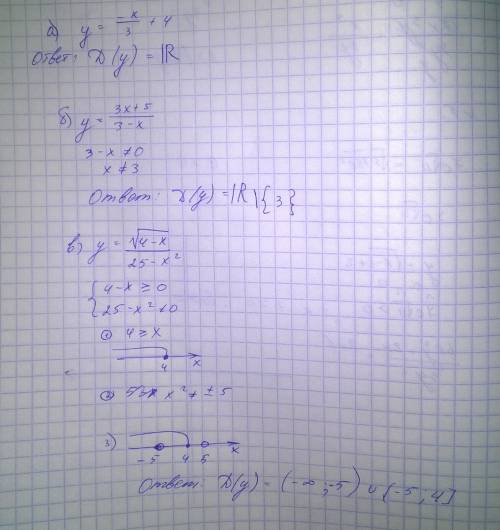 а) y = -x/3 + 4
Ответ: D(y) = ℝ
б) y = 3x+5/3-x
3-x ≠ 0
x ≠ 3
Ответ: D(y) = ℝ\{3}
в) y = √4-x/25-x²
{ 4-x ≥ 0
25-x² ≠ 0
① 4 ≥ x
4 x
② x² ≠ ±5
3)
-5 4 5 x
Ответ: D(y) = (-∞; -5) ∪ (-5; 4]